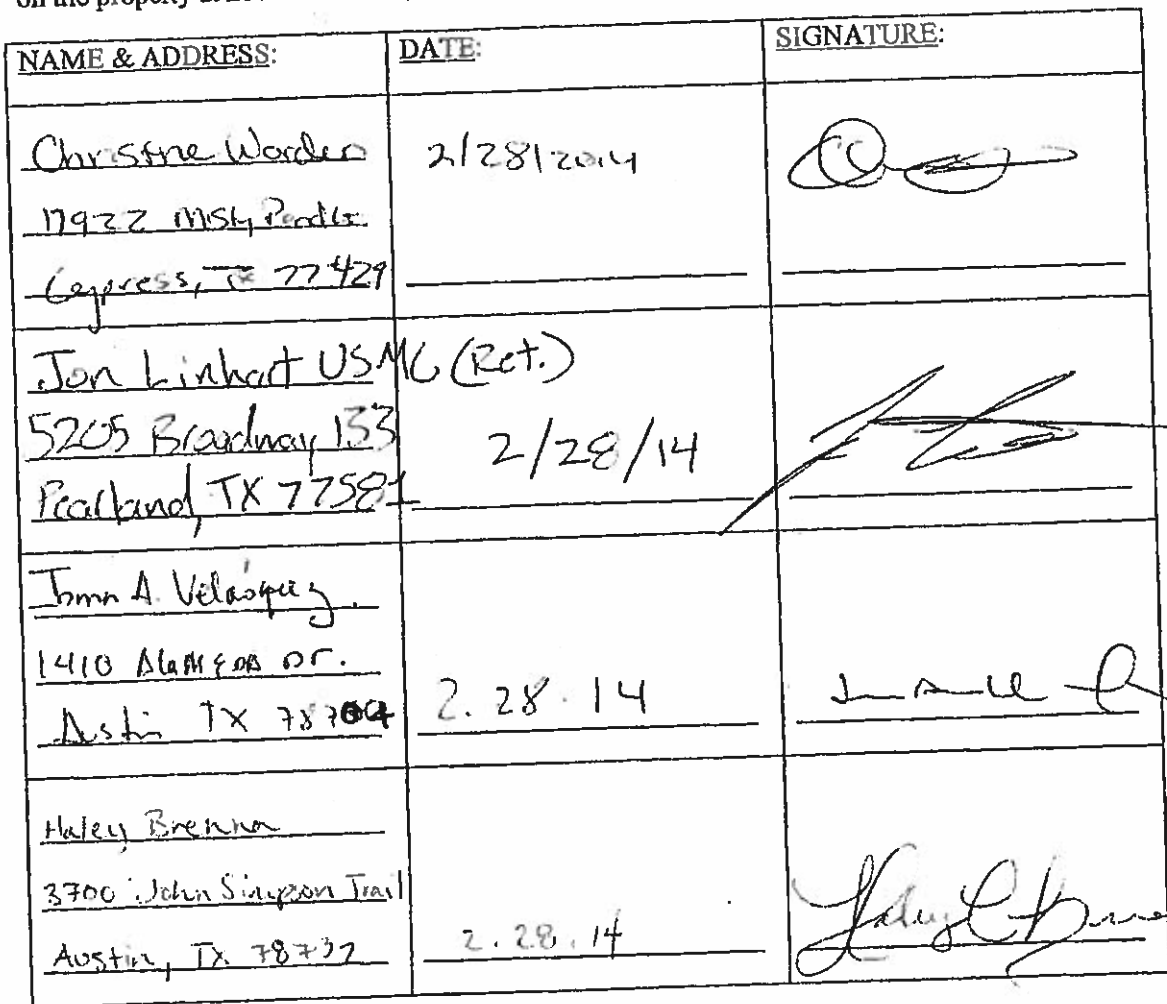 on the property
NAME & ADDRESS: DATE: SIGNATURE:
Christine Worden 2/28/2014
17922 Misty
Cypress, TX 77429
Jon Linhart USMC (Ret.)
5205 Broadway 133
Pearland, TX 77581
2/28/14
A. Velasquez
1410 Alameda Dr.
Austin TX 78704
2.28.14
Haley Brenna
3700 John Simpson Trail
Austin, TX 78732
2.28.14